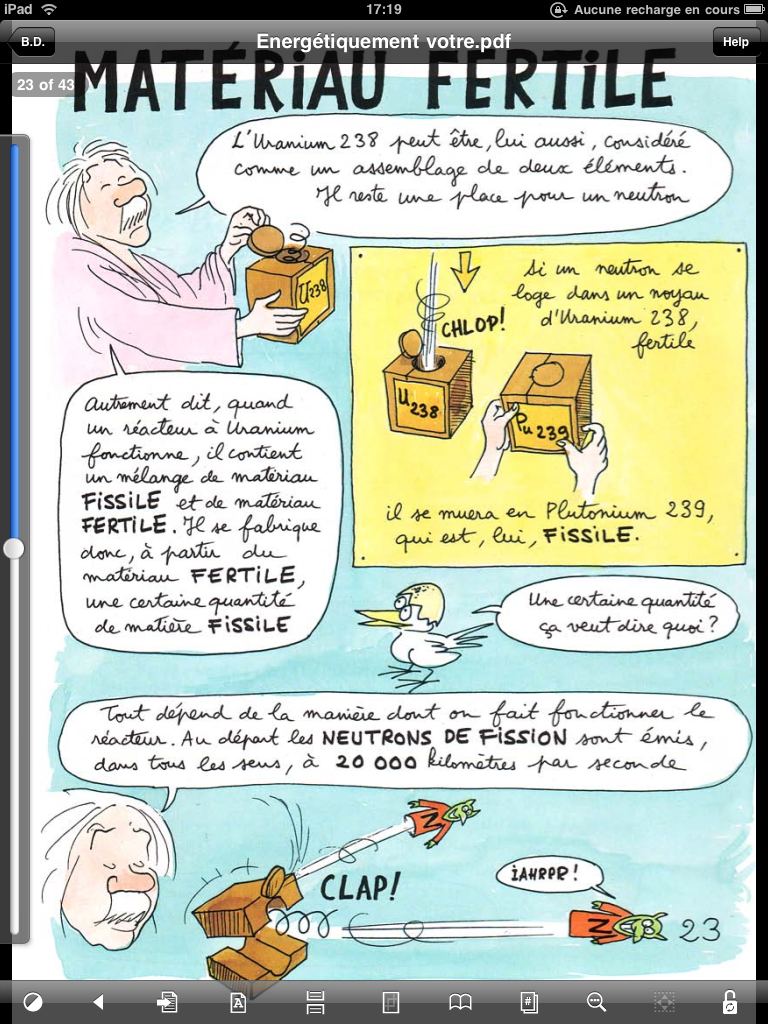 iPad 17:19 Aucune recharge en cours
B.D. Energétiquement votre.pdf Help
23 of 43
MATÉRIAU FERTILE
L'Uranium 238 peut être, lui aussi, considéré
comme un assemblage de deux éléments.
Il reste une place pour un neutron
U238
Si un neutron se
loge dans un noyau
d'Uranium 238,
fertile
CHLOP!
U238
Pu 239
il se muera en Plutonium 239,
qui est, lui, FISSILE.
Autrement dit, quand
un réacteur à Uranium
fonctionne, il contient
un mélange de matériau
FISSILE et de matériau
FERTILE. Il se fabrique
donc, à partir du
matériau FERTILE,
une certaine quantité
de matière FISSILE
Une certaine quantité
ça veut dire quoi?
Tout dépend de la manière dont on fait fonctionner le
réacteur. Au départ les NEUTRONS DE FISSION sont émis,
dans tous les sens, à 20 000 kilomètres par seconde
N
CLAP!
IAHRRR!
N
23